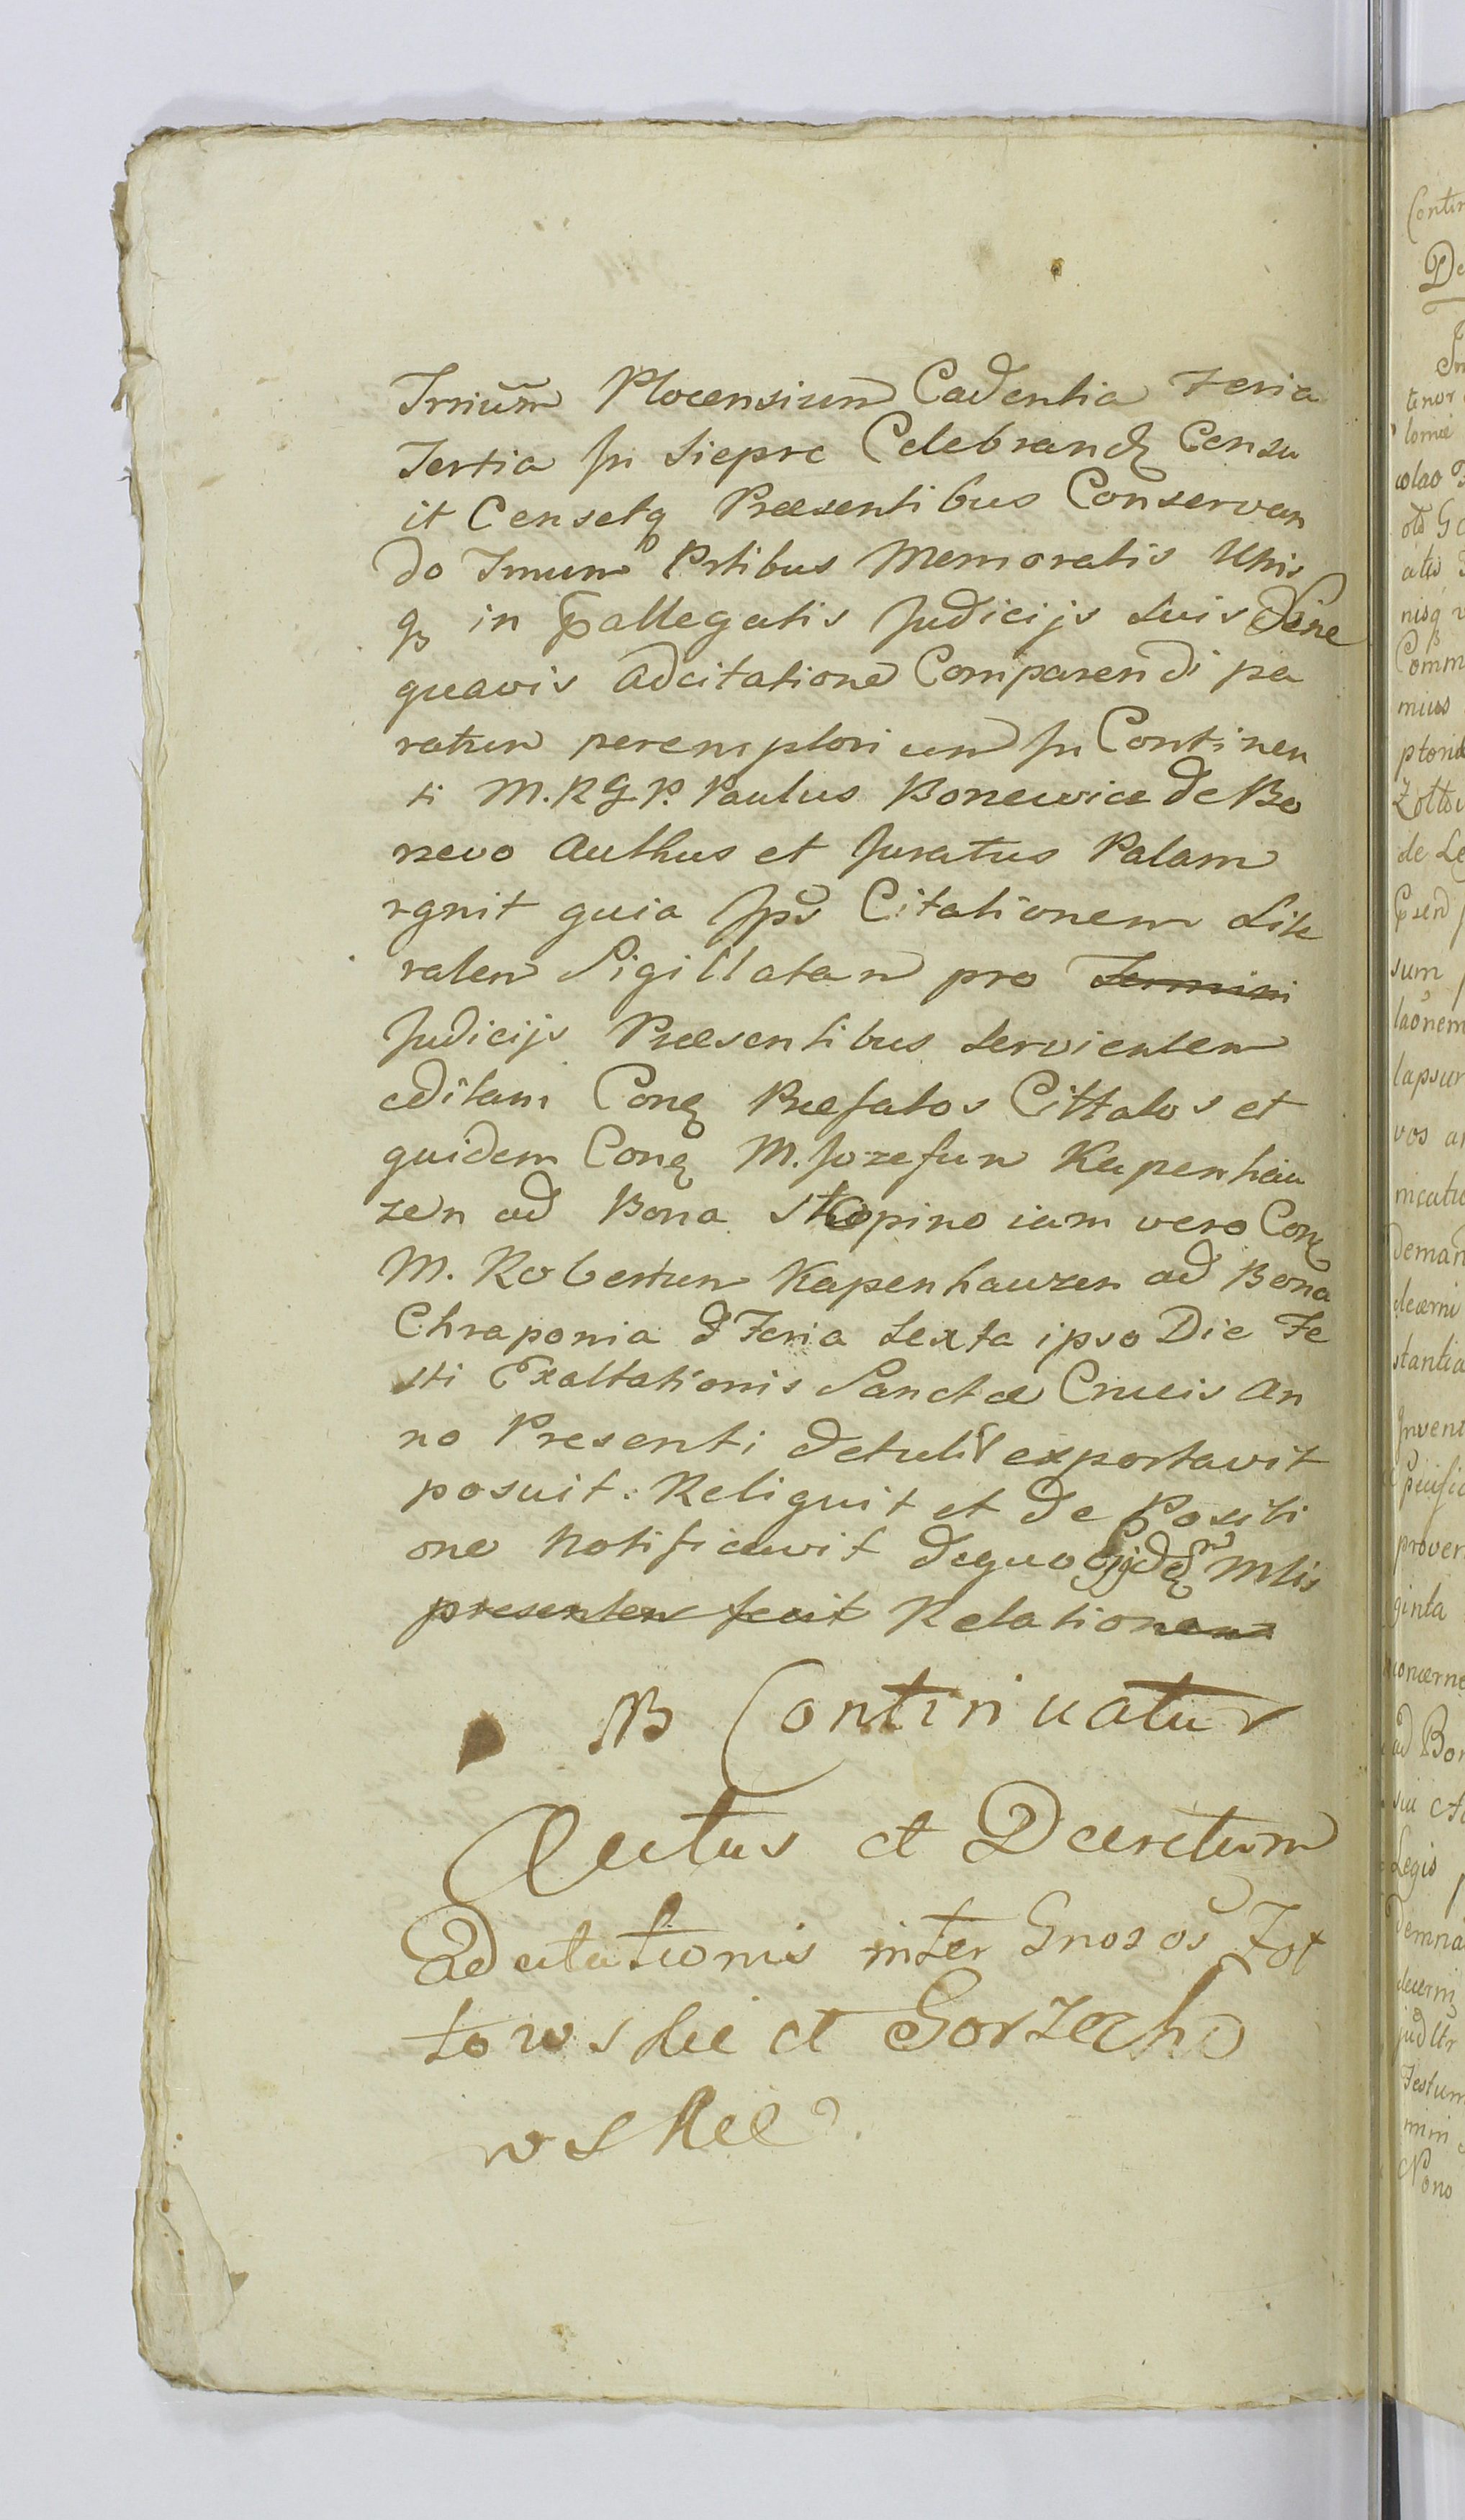 Trrium Plocensium Cadentia Feria
Tertia In Sieprc Celebrandꝫ Censu
it Censetq Præsentibus Conservan
do Tmum Prtibus Memoratis Utris
qꝫ in Pallegatis Judicijs Suis Sine
quavis adcitatione Comparendi pa
ratum peremptorium In Continen
ti M. R G P. Paulus Bonewice de Bo
newo Authus et Juratus Palam
rgnit quia Ips Citationem Lite
ralem Sigillatam pro Termini
Judicijs Præsentibus Servientem
editam Conꝫ Præfatos Cittatos et
quidem Conꝫ M. Jozefum Kapenhau
zen ad Bona Skopino iam vero Conꝫ
M. Robertum Kapenhauzen ad Bona
Chraponia d Feria Sexta ipso Die Fe
sti Exaltationis Sanctæ Crucis An
no Presenti detulit exportavit
posuit. Reliquit et de Positi
one Notificavit dequo Mlis
presentem fecit Relationem
NB Continuatur
Actus et Decretum
Adcitationis inter Gnosos Zot
towskie et Gorzecho
wskie
Contin
De
In
tenor
lomie
colao
nisq
Comm
mius
ptorie
Zottow
de Le
sum
laonem
lapsum
vos
nicatio
deman
decerni
stantia
Invent
prover
ginta
concerne
ad Bon
Legis
demna
decerni
judltr
Festum
mini
Nono